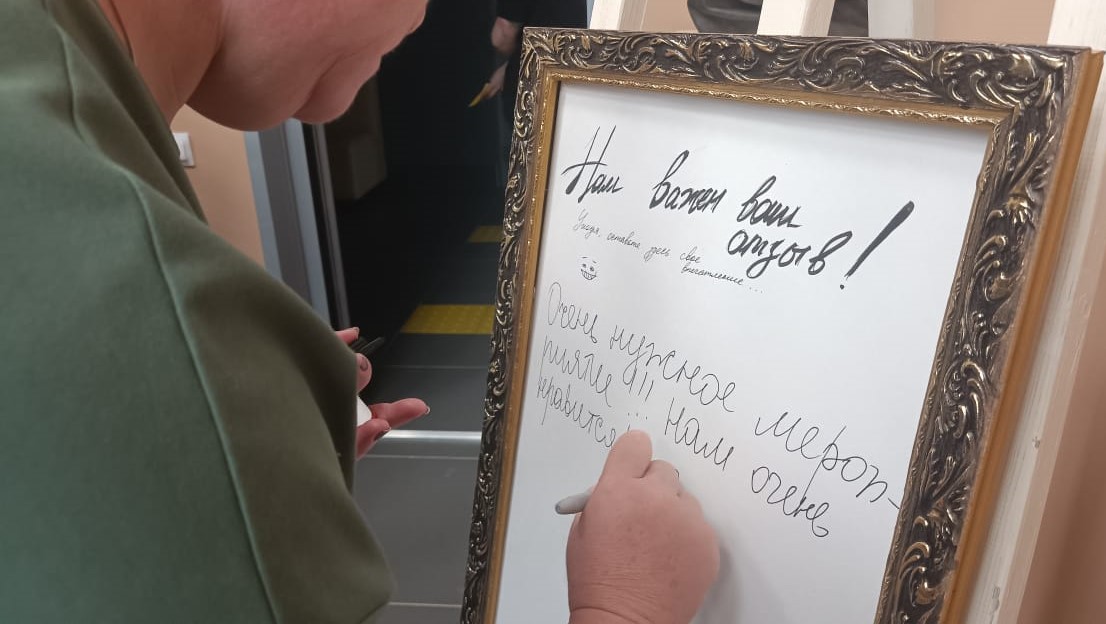 Нам важен ваш
отзыв!
Уходя, оставьте здесь свое
впечатление...
Очень нужное мероп-
риятие!!! Нам очень
нравится!